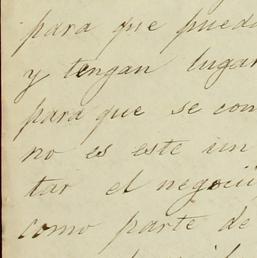 para que pueda
y tengan lugar
para que se con
no es este un
tar el negocio
como parte de